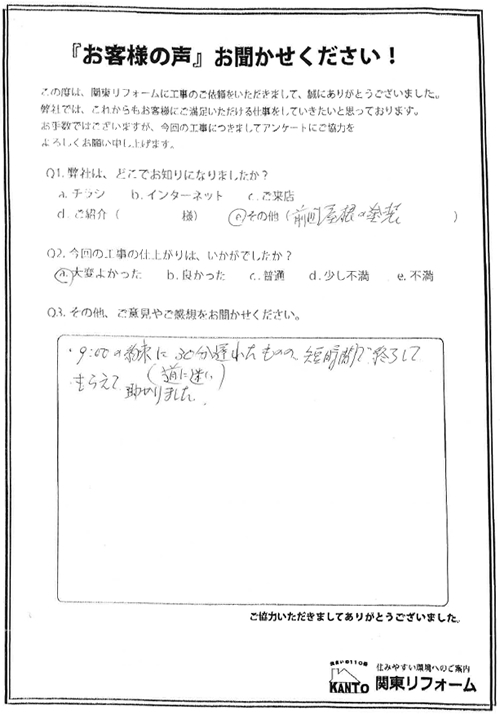 『お客様の声』お聞かせください！
この度は、関東リフォームに工事のご依頼をいただきまして、誠にありがとうございました。
弊社では、これからもお客様にご満足いただける仕事をしていきたいと思っております。
お手数ではございますが、今回の工事につきましてアンケートにご協力を
よろしくお願い申し上げます。
Q1.弊社は、どこでお知りになりましたか？
a.チラシ b.インターネット c.ご来店
d.ご紹介（ 様） e.その他（前回屋根の塗装 ）
Q2.今回の工事の仕上がりは、いかがでしたか？
a.大変よかった b.良かった c.普通 d.少し不満 e.不満
Q3.その他、ご意見やご感想をお聞かせください。
・9:00の約束に30分遅れたものの、短時間で終らして
（道に迷い）
もらえて 助かりました。
ご協力いただきましてありがとうございました。
住まいの110番
KANTO
住みやすい環境へのご案内
関東リフォーム